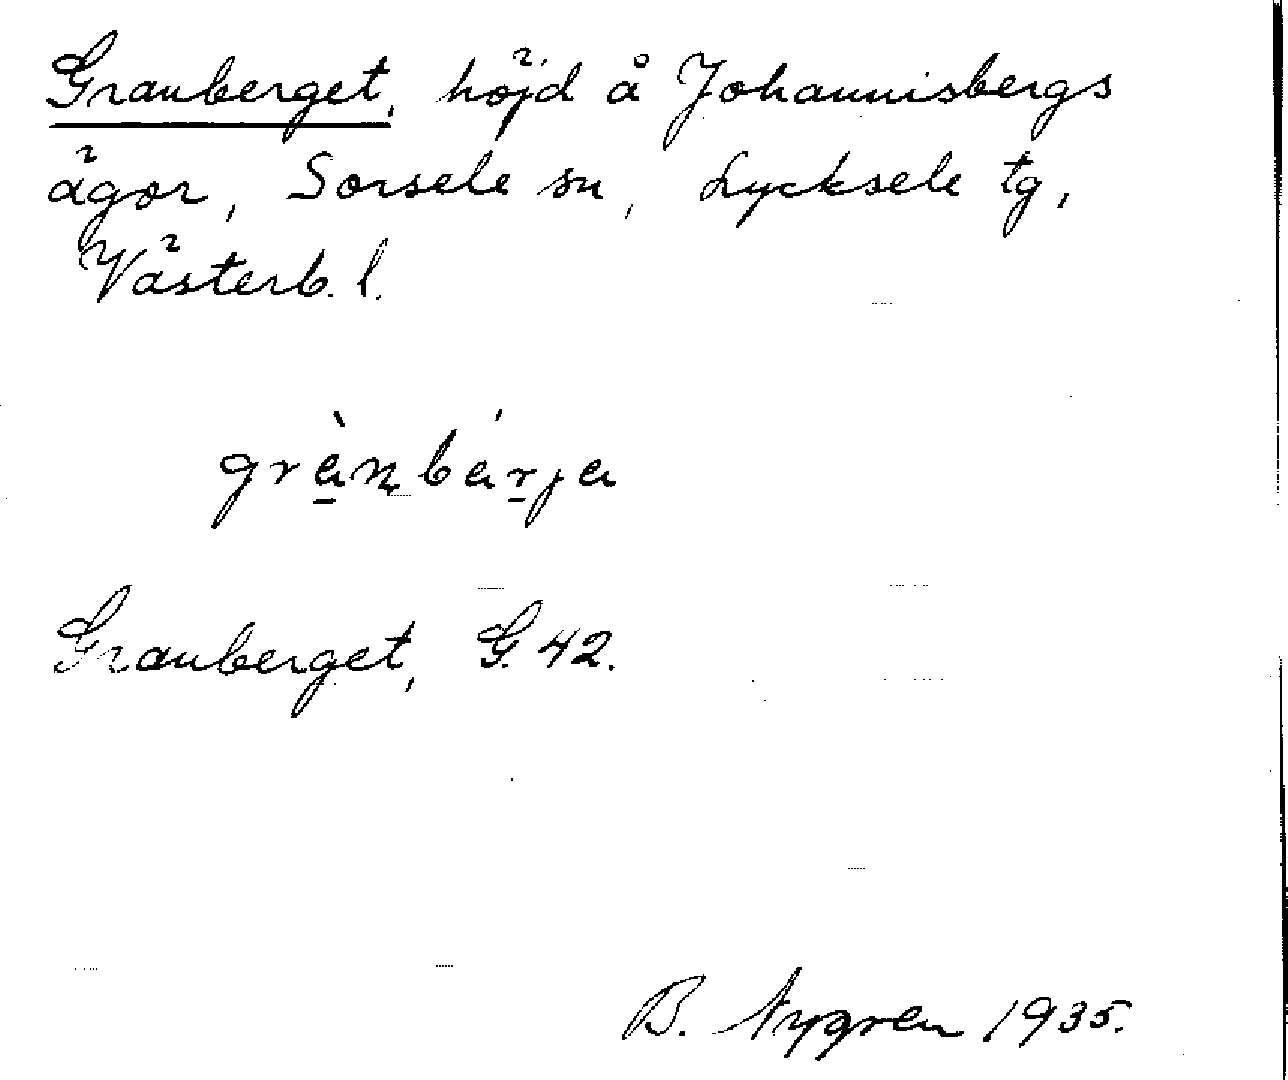 Granberget, höjd å Johannisbergs
ägor, Sorsele sn, Lycksele tg,
Västerb. l.
grànbárja
Granberget, G. 42.
B. Nygren 1935.